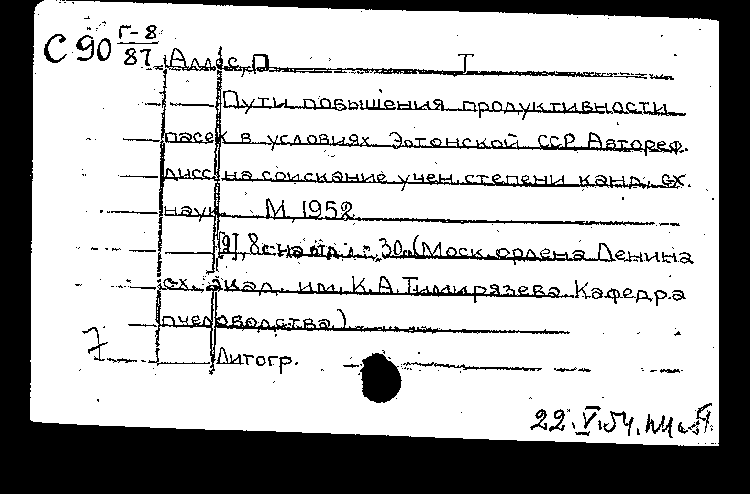 С 90 Г-8
87
Аллос, П Т
Пути повышения продуктивности
пасек в условиях Эстонской ССР. Автореф.
дисс. на соискание учен. степени канд. с.-х.
наук. М., 1952
[9], 8 с. на отд. л.; 30. (Моск. ордена Ленина
с.-х. акад. им. К. А. Тимирязева. Кафедра
пчеловодства.)
Литогр.
7
22.V.54.